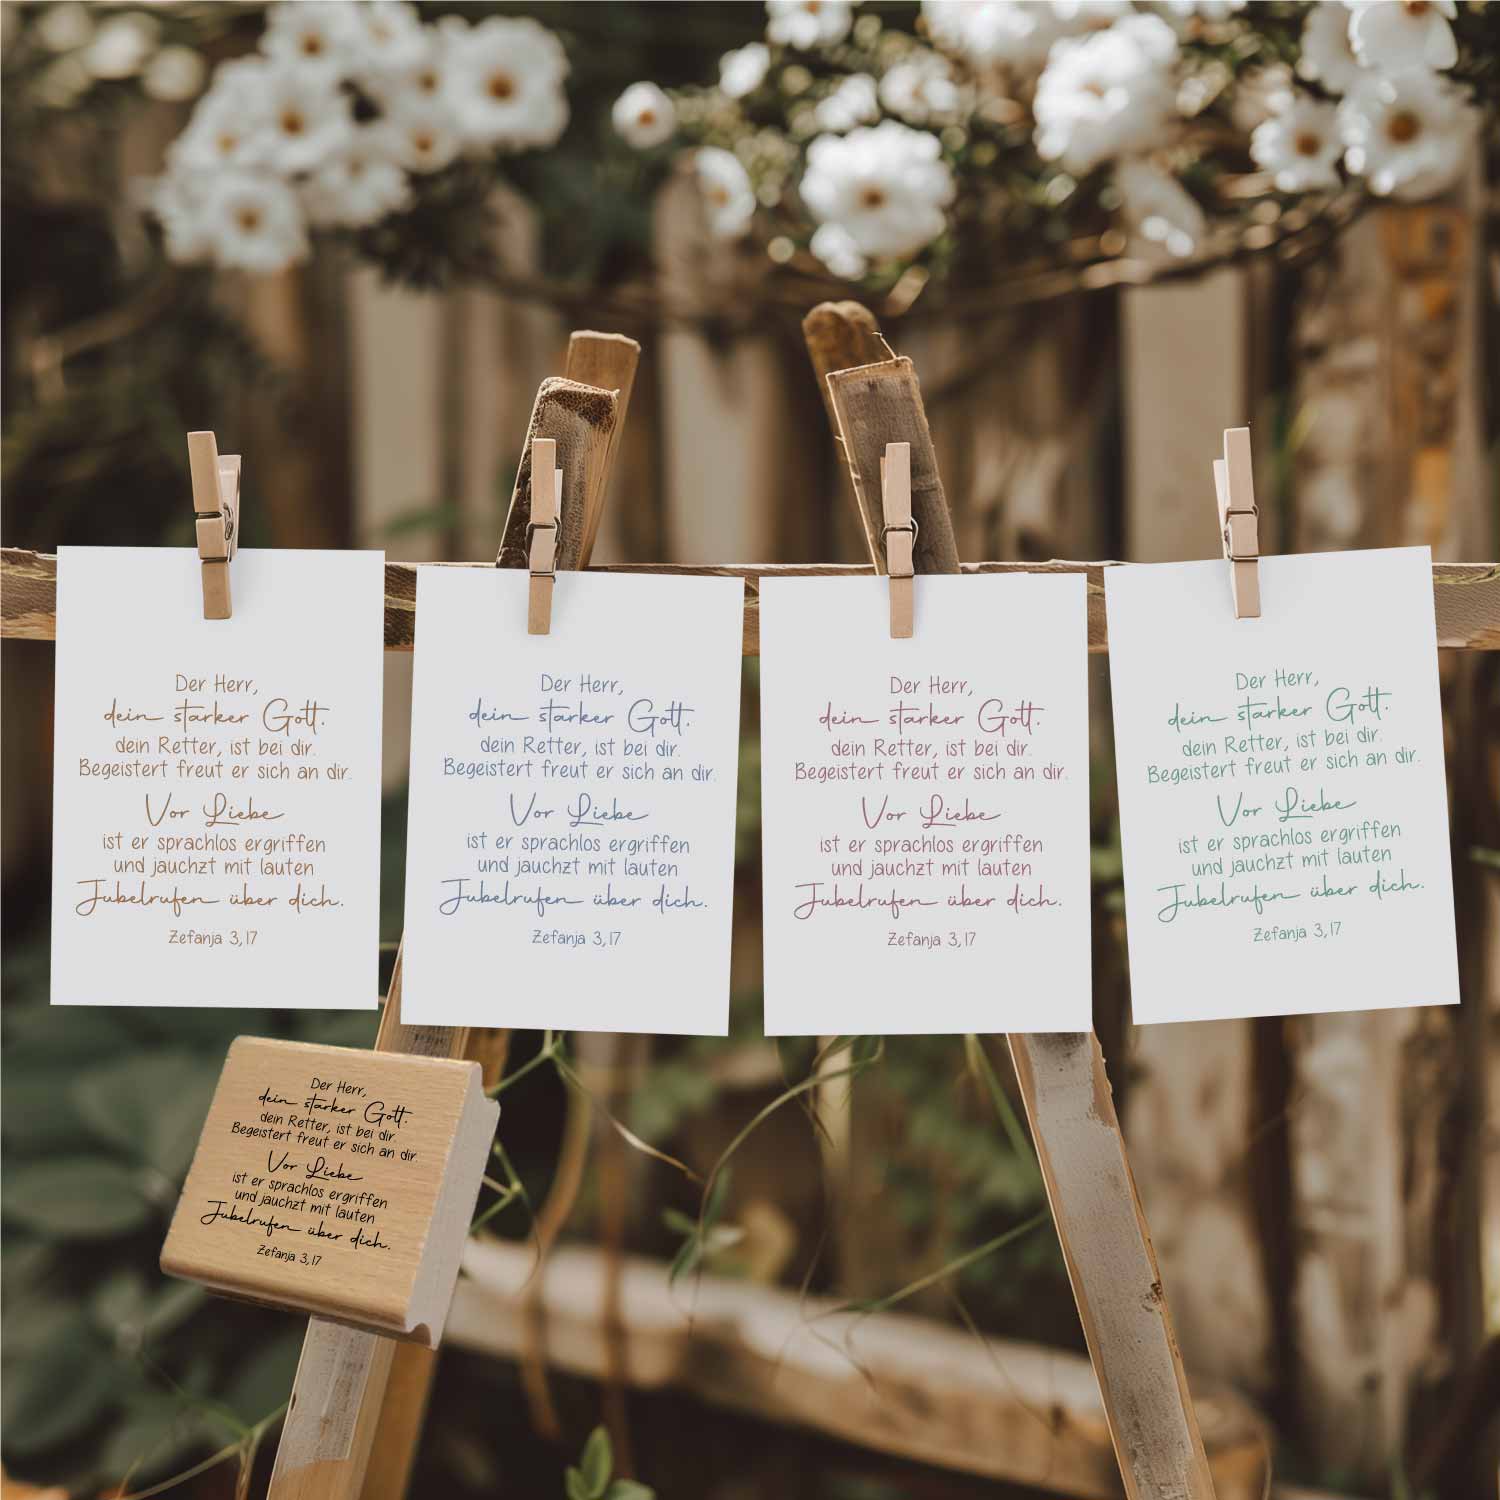 Der Herr,
dein starker Gott.
dein Retter, ist bei dir.
Begeistert freut er sich an dir.
Vor Liebe
ist er sprachlos ergriffen
und jauchzt mit lauten
Jubelrufen über dich.
Zefanja 3,17
Der Herr,
dein starker Gott.
dein Retter, ist bei dir.
Begeistert freut er sich an dir.
Vor Liebe
ist er sprachlos ergriffen
und jauchzt mit lauten
Jubelrufen über dich.
Zefanja 3,17
Der Herr,
dein starker Gott.
dein Retter, ist bei dir.
Begeistert freut er sich an dir.
Vor Liebe
ist er sprachlos ergriffen
und jauchzt mit lauten
Jubelrufen über dich.
Zefanja 3,17
Der Herr,
dein starker Gott.
dein Retter, ist bei dir.
Begeistert freut er sich an dir.
Vor Liebe
ist er sprachlos ergriffen
und jauchzt mit lauten
Jubelrufen über dich.
Zefanja 3,17
Der Herr,
dein starker Gott.
dein Retter, ist bei dir.
Begeistert freut er sich an dir.
Vor Liebe
ist er sprachlos ergriffen
und jauchzt mit lauten
Jubelrufen über dich.
Zefanja 3,17